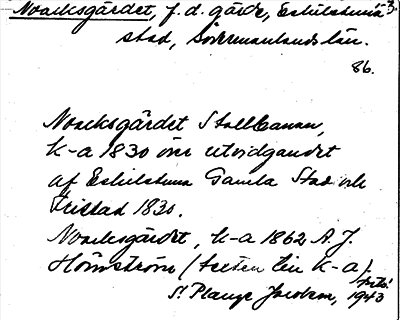 Noacksgärdet, f.d. gärde, Eskilstuna 3.
stad, Södermanlands län.
86.
Noacksgärdet Stallbacken,
K-a 1830 över utvidgandet
af Eskilstuna Gamla Stad och
Fristad 1830.
Noacksgärdet, K-a 1862 A. J.
Holmström (texten till K-a).
St. Plange Jacobson, 1943